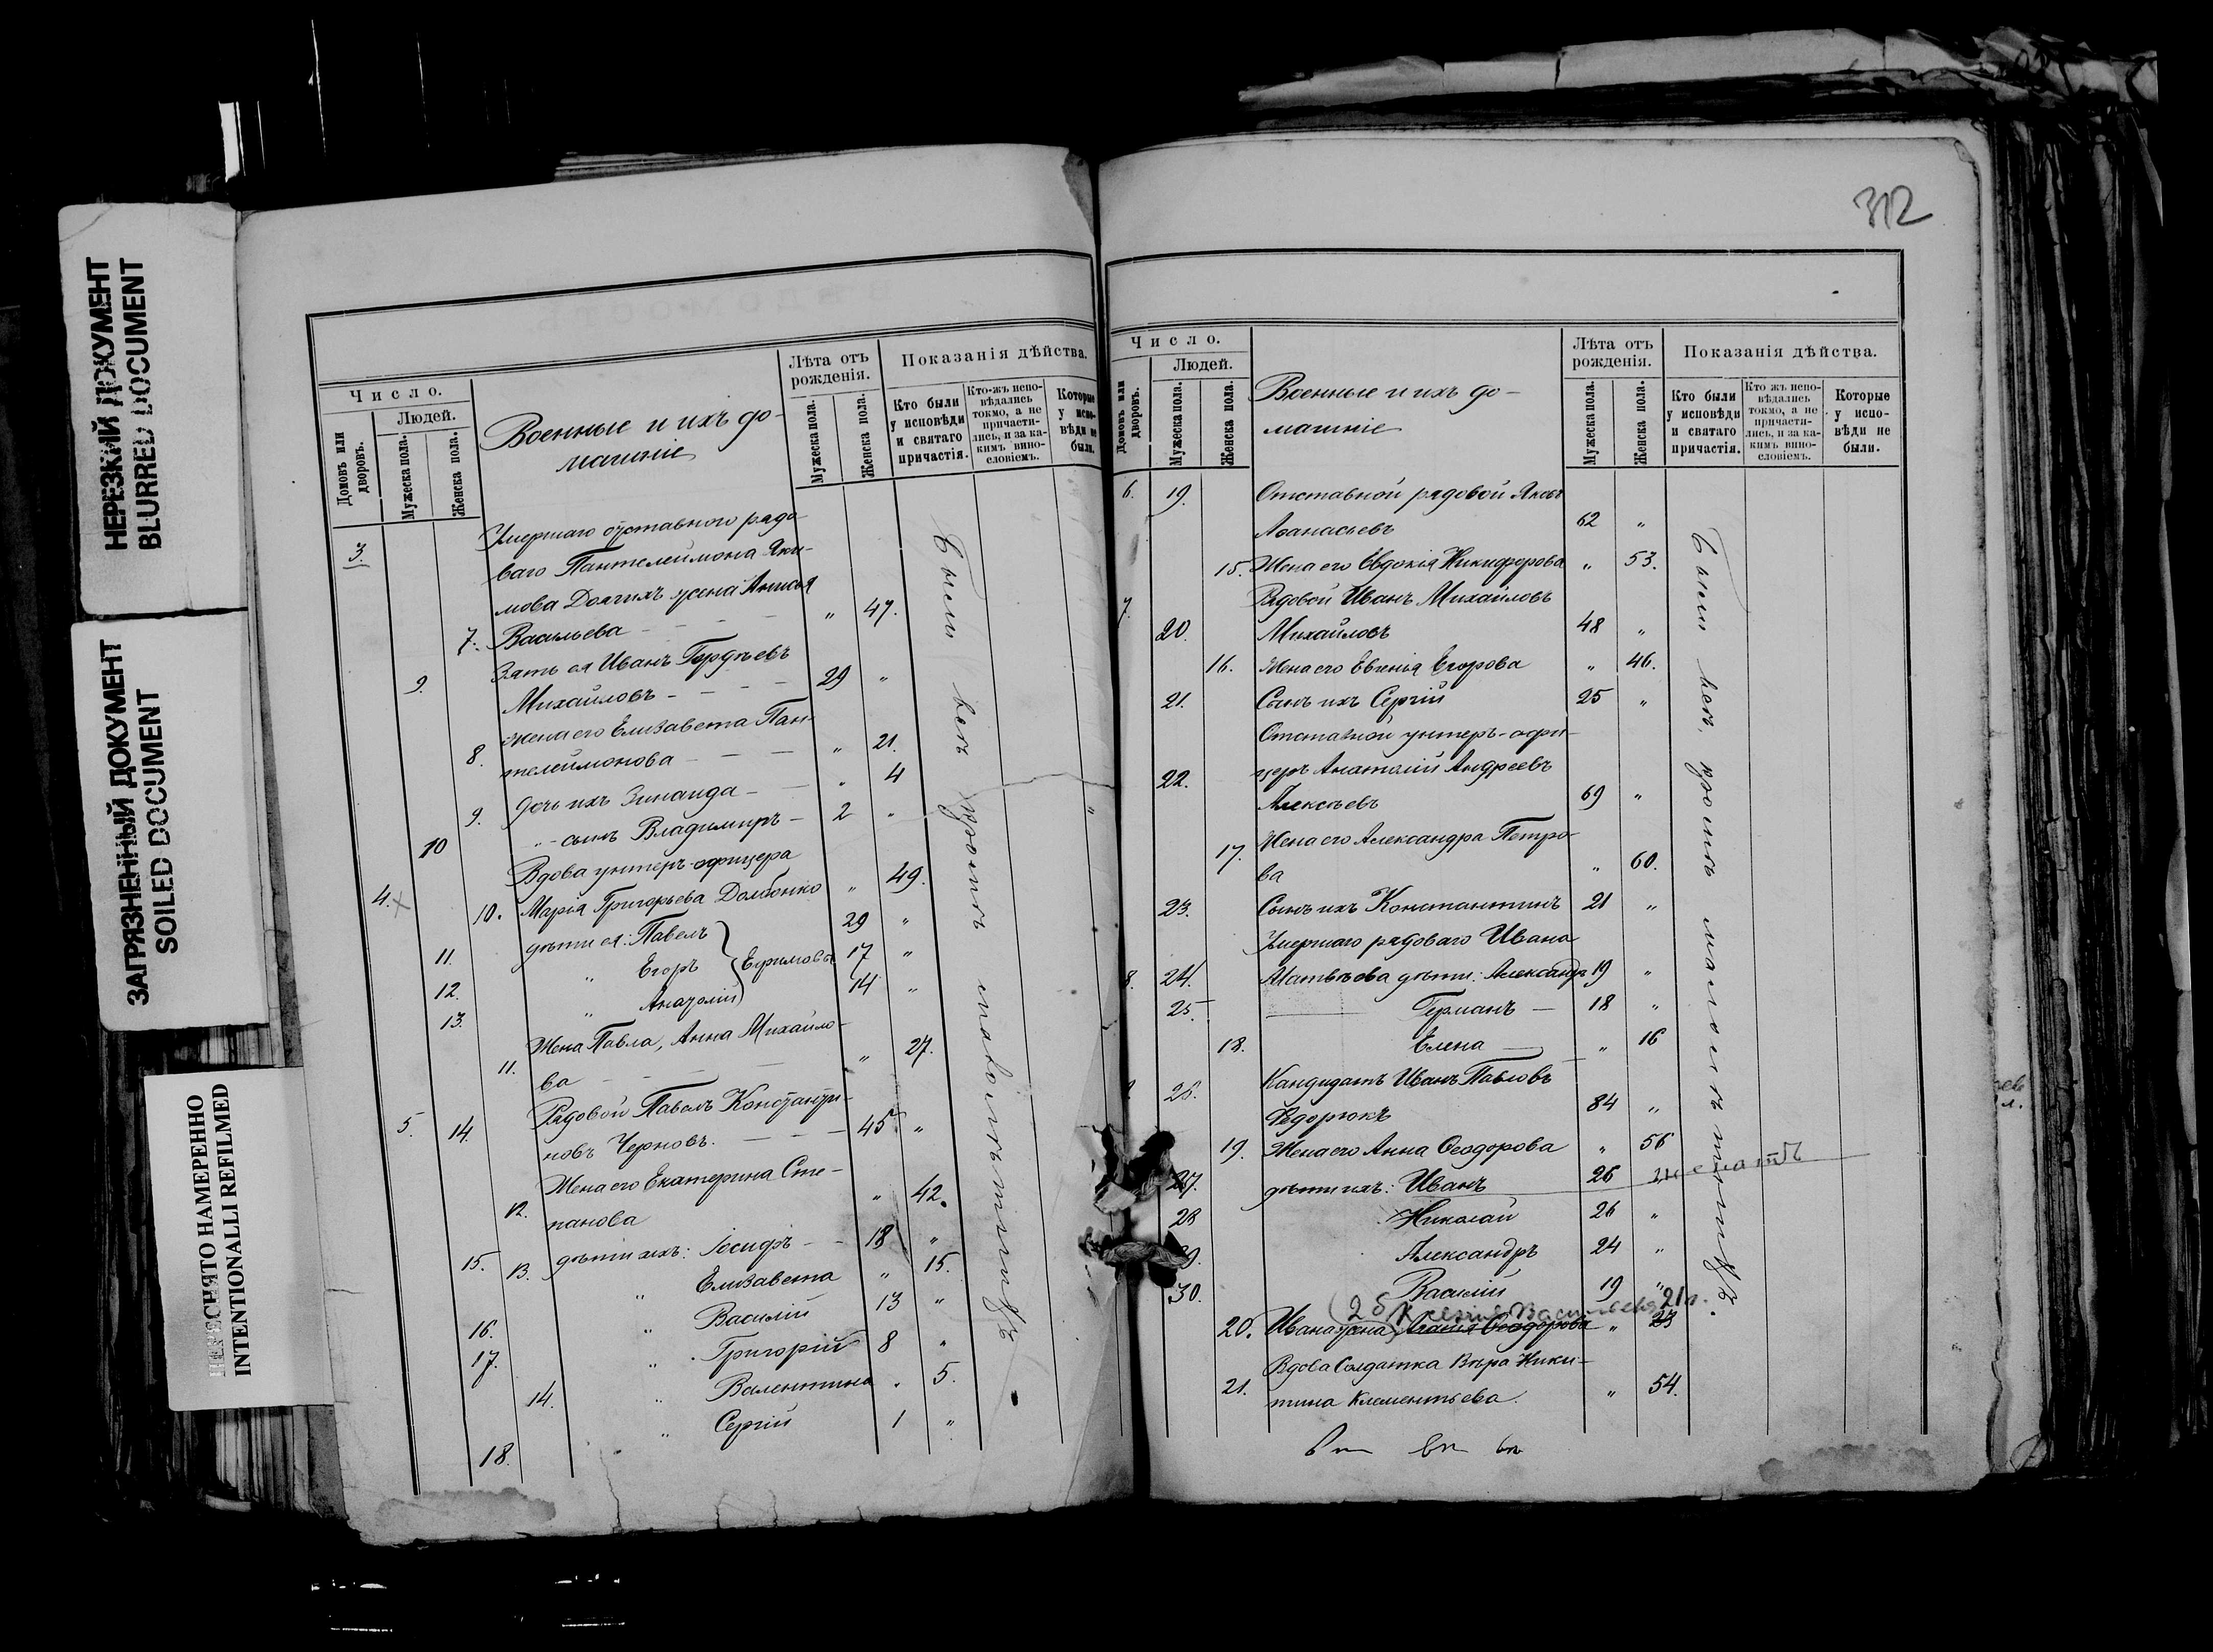 НЕРЕЗКИЙ ДОКУМЕНТ
BLURRED DOCUMENT
ЗАГРЯЗНЕННЫЙ ДОКУМЕНТ
SOILED DOCUMENT
ПЕРЕСНЯТО НАМЕРЕННО
INTENTIONALLI REFILMED
Число.
Людей.
Домовъ или дворовъ.
Мужеска пола.
Женска пола.
Военные и ихъ до-
машніе
Лѣта отъ рожденія.
Мужеска пола.
Женска пола.
Показанія дѣйства.
Кто были у исповѣди и святаго причастія.
Кто-жъ исповѣдались токмо, а не причастились, и за какимъ винословіемъ.
Которые у исповѣди не были.
3. Умершаго отставного рядо-
ваго Пантелеймона Яки-
мова Долгихъ жена Анисья
7. Васильева - - - „ 47.
Зять ея Иванъ Гордѣевъ
9. Михайловъ - - - - 29 „
жена его Елизавета Пан-
8. телеймонова - - - „ 21.
9. дочь ихъ Зинаида - - „ 4
10 „ - сынъ Владимиръ - 2 „
Вдова унтеръ-офицера
4. 10. Марія Григорьева Домбонко „ 49.
11. дѣти ея: Павелъ 29 „
12. „ Егоръ Ефимовы 17 „
13. „ Анатолій 14 „
Жена Павла, Анна Михайло-
11. ва - - - „ 27.
Рядовой Павелъ Константи-
5. 14. новъ Черновъ. - - - 45 „
Жена его Екатерина Сте-
12. панова „ 42.
15. дѣти ихъ: Іосифъ - - 18 „
13. „ Елизавета „ 15.
16. „ Василій 13 „
17. „ Григорій 8 „
14. „ Валентина „ 5.
18. „ Сергій 1 „
312
Число.
Людей.
Домовъ или дворовъ.
Мужеска пола.
Женска пола.
Военные и ихъ до-
машніе
Лѣта отъ рожденія.
Мужеска пола.
Женска пола.
Показанія дѣйства.
Кто были у исповѣди и святаго причастія.
Кто жъ исповѣдались токмо, а не причастились, и за какимъ винословіемъ.
Которые у исповѣди не были.
6. 19. Отставной рядовой Яковъ
Аѳанасьевъ 62 „
15. Жена его Евдокія Никифорова „ 53.
7. Рядовой Иванъ Михайловъ
20. Михайловъ 48 „
16. Жена его Евгенія Егорова „ 46.
21. Сынъ ихъ Сергій 25 „
Отставной унтеръ-офи-
22. церъ Анатолій Андреевъ
Алексѣевъ 69 „
17. Жена его Александра Петро-
ва „ 60.
23. Сынъ ихъ Константинъ 21 „
Умершаго рядоваго Ивана
8. 24. Матвѣева дѣти: Александръ 19 „
25. Германъ - 18 „
18. Елена - „ 16
Кандидатъ Иванъ Павловъ
26. Ѳедорюкъ 84 „
19. Жена его Анна Ѳеодорова „ 56
27. дѣти ихъ: Иванъ 26 женатъ
28 Николай 26 „
Александръ 24 „
30. Василій 19 „
Васильева 21 л.
20. Ивана жена Агафія Ѳеодорова „ 23
Вдова Солдатка Вѣра Ники-
21. тина Клементьева. „ 54.